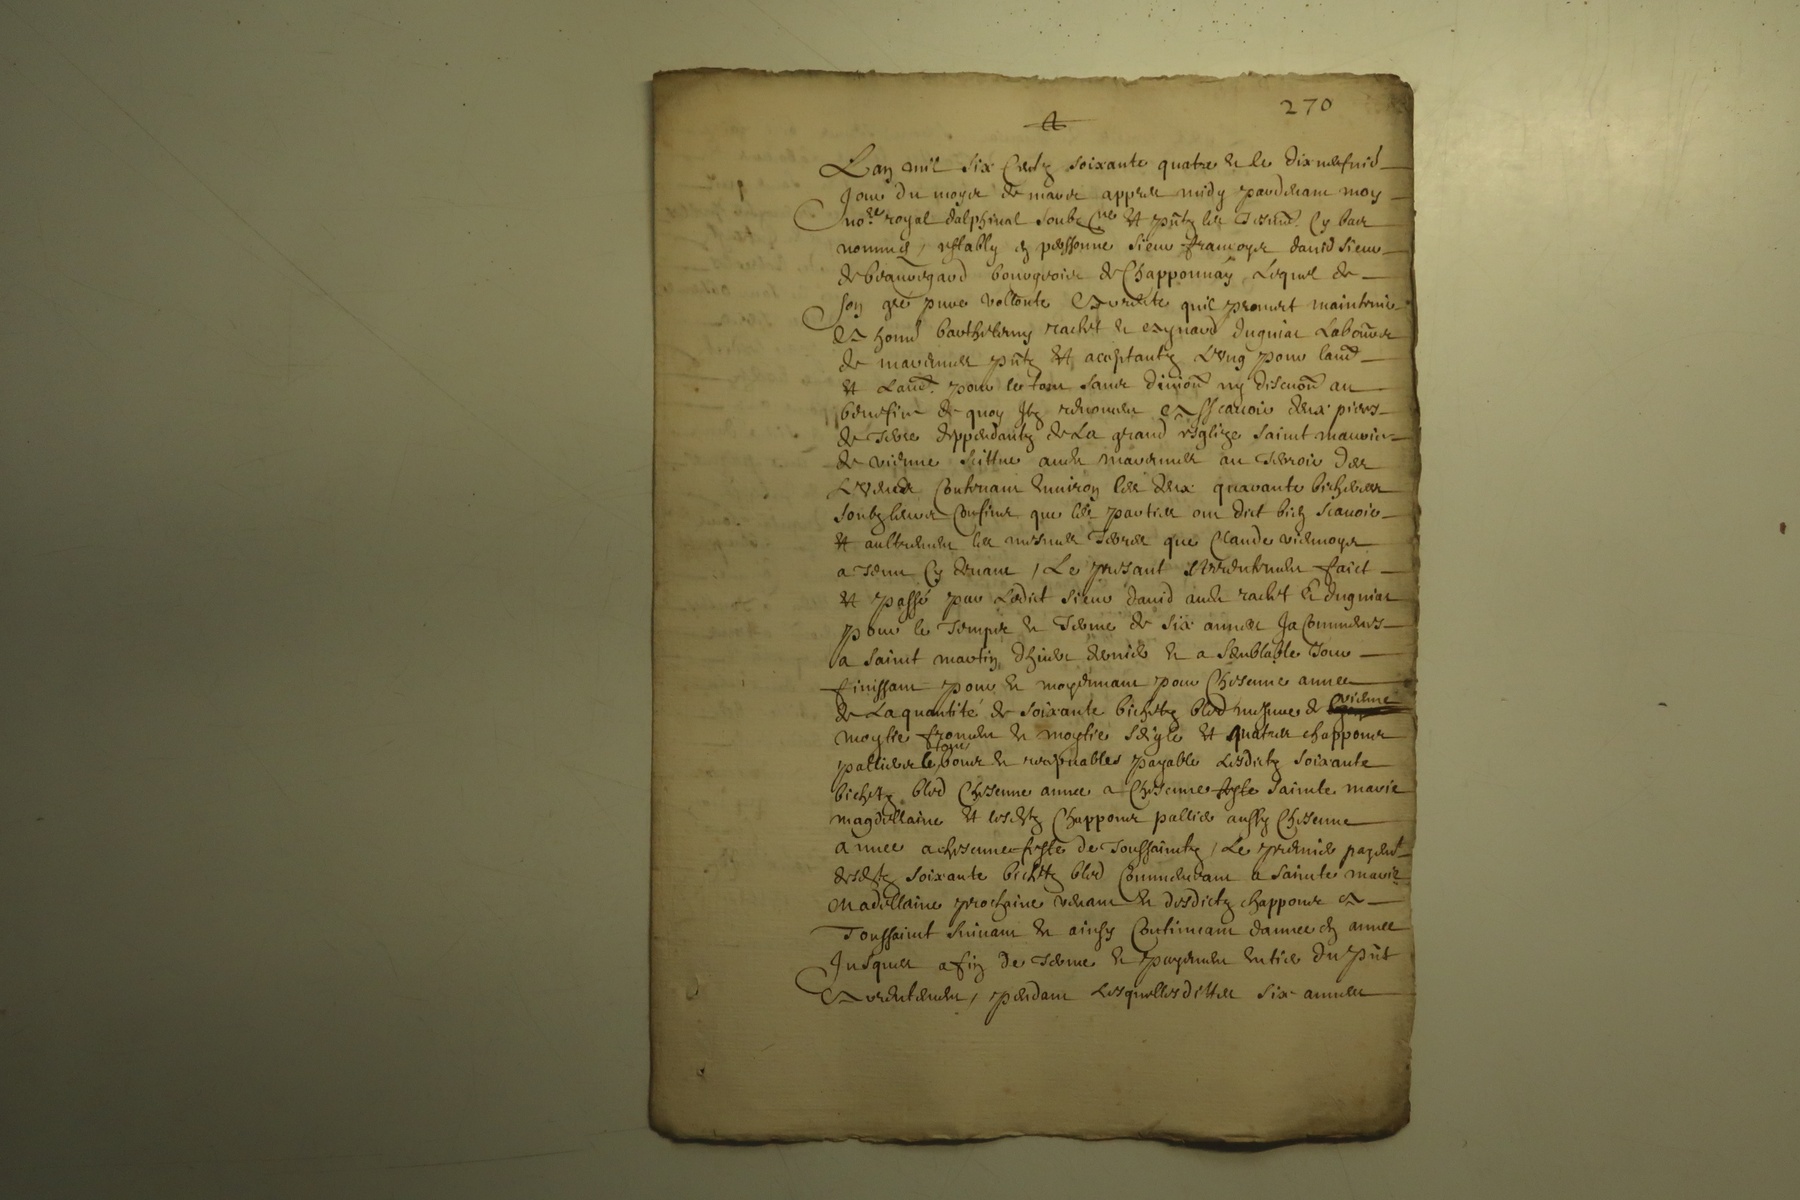 270
Lan mil six centz soixante quatre et le dix neufvie
Jour du moys de mars appres midy pardevant moy
no.re royal dalphinal soubz.ne et pntz les tesm. cy bas
nommes / establys en personne sieur francoys david sieur
de beauregard bourgeois de Chapponnay Lequel de
son gre pure vollonte qu'il promet maintenir
a hon barthelemy rachet et eynard duguiat Labour
de marennes pntz et aceptantz L'ung pour laut
et Laut. pour le tout sans division ny discution au
benefice de quoy Ilz renoncent a scavoir deux pieces
de terre deppendantz de La grand esglize saint maurice
de vienne scittue audt marennes au terroir des
contenant environ les deux quarante bicherees
soubz leurs confins que les parties ont dict bien scavoir
et aultrement les mesmes terres que Claude viennoys
a tenu cy devant / Le presant arrentement faict
et passé par Ledict sieur david audt rachet et duguiat
pour le temps et terme de six annees Ja commences
a saint martin d'hiver dernier et a semblable Jour
finissant pour et moyennant pour Chescune annee
de La quantité de soixante bichetz bled mesure de vienne
moytie froment et moytie seigle et quatre chappons
paillier bons et recepvables payable Lesdictz soixante
bichetz bled Chescune annee a Chescune feste sainte marie
magdellaine et lesdtz Chappons paillier aussy Chescune
annee a chescune feste de Toussaintz / Le premier payent
desdtz soixante bichetz bled Commencant a sainte marie
Madellaine prochaine venant et desdictz chappons a
Toussaint suivant et ainsy Continuant dannee en annee
Jusques a fin de terme et payement entier du pnt
arrentement / pendant Lesquelles dittes six annees